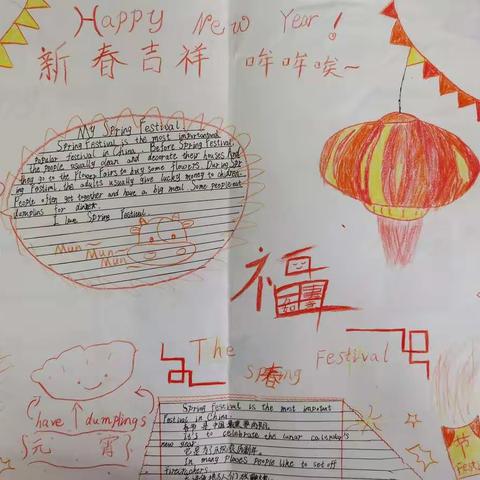 Happy New Year!
新春吉祥 哞哞唉~
My Spring Festival
Spring Festival is the most
popular festival in China. Before Spring Festival,
the people usually clean and decorate they houses. And
they go to the Flower Fairs to buy some flowers. During Spr
ing Festival the adults usually give lucky money to children.
People often get together and have a big meal. Some people eat
dumplins for
I love Spring Festival.
Mun~
Mun~
Mun~
福
The Spring Festival
have dumplings
元宵
节
Spring Festival is the most important
Festival in China.
春节是中国最重要的节日。
It's to celebrate the lunar calendar's
new year.
In many places people like to set off
firecrackers.